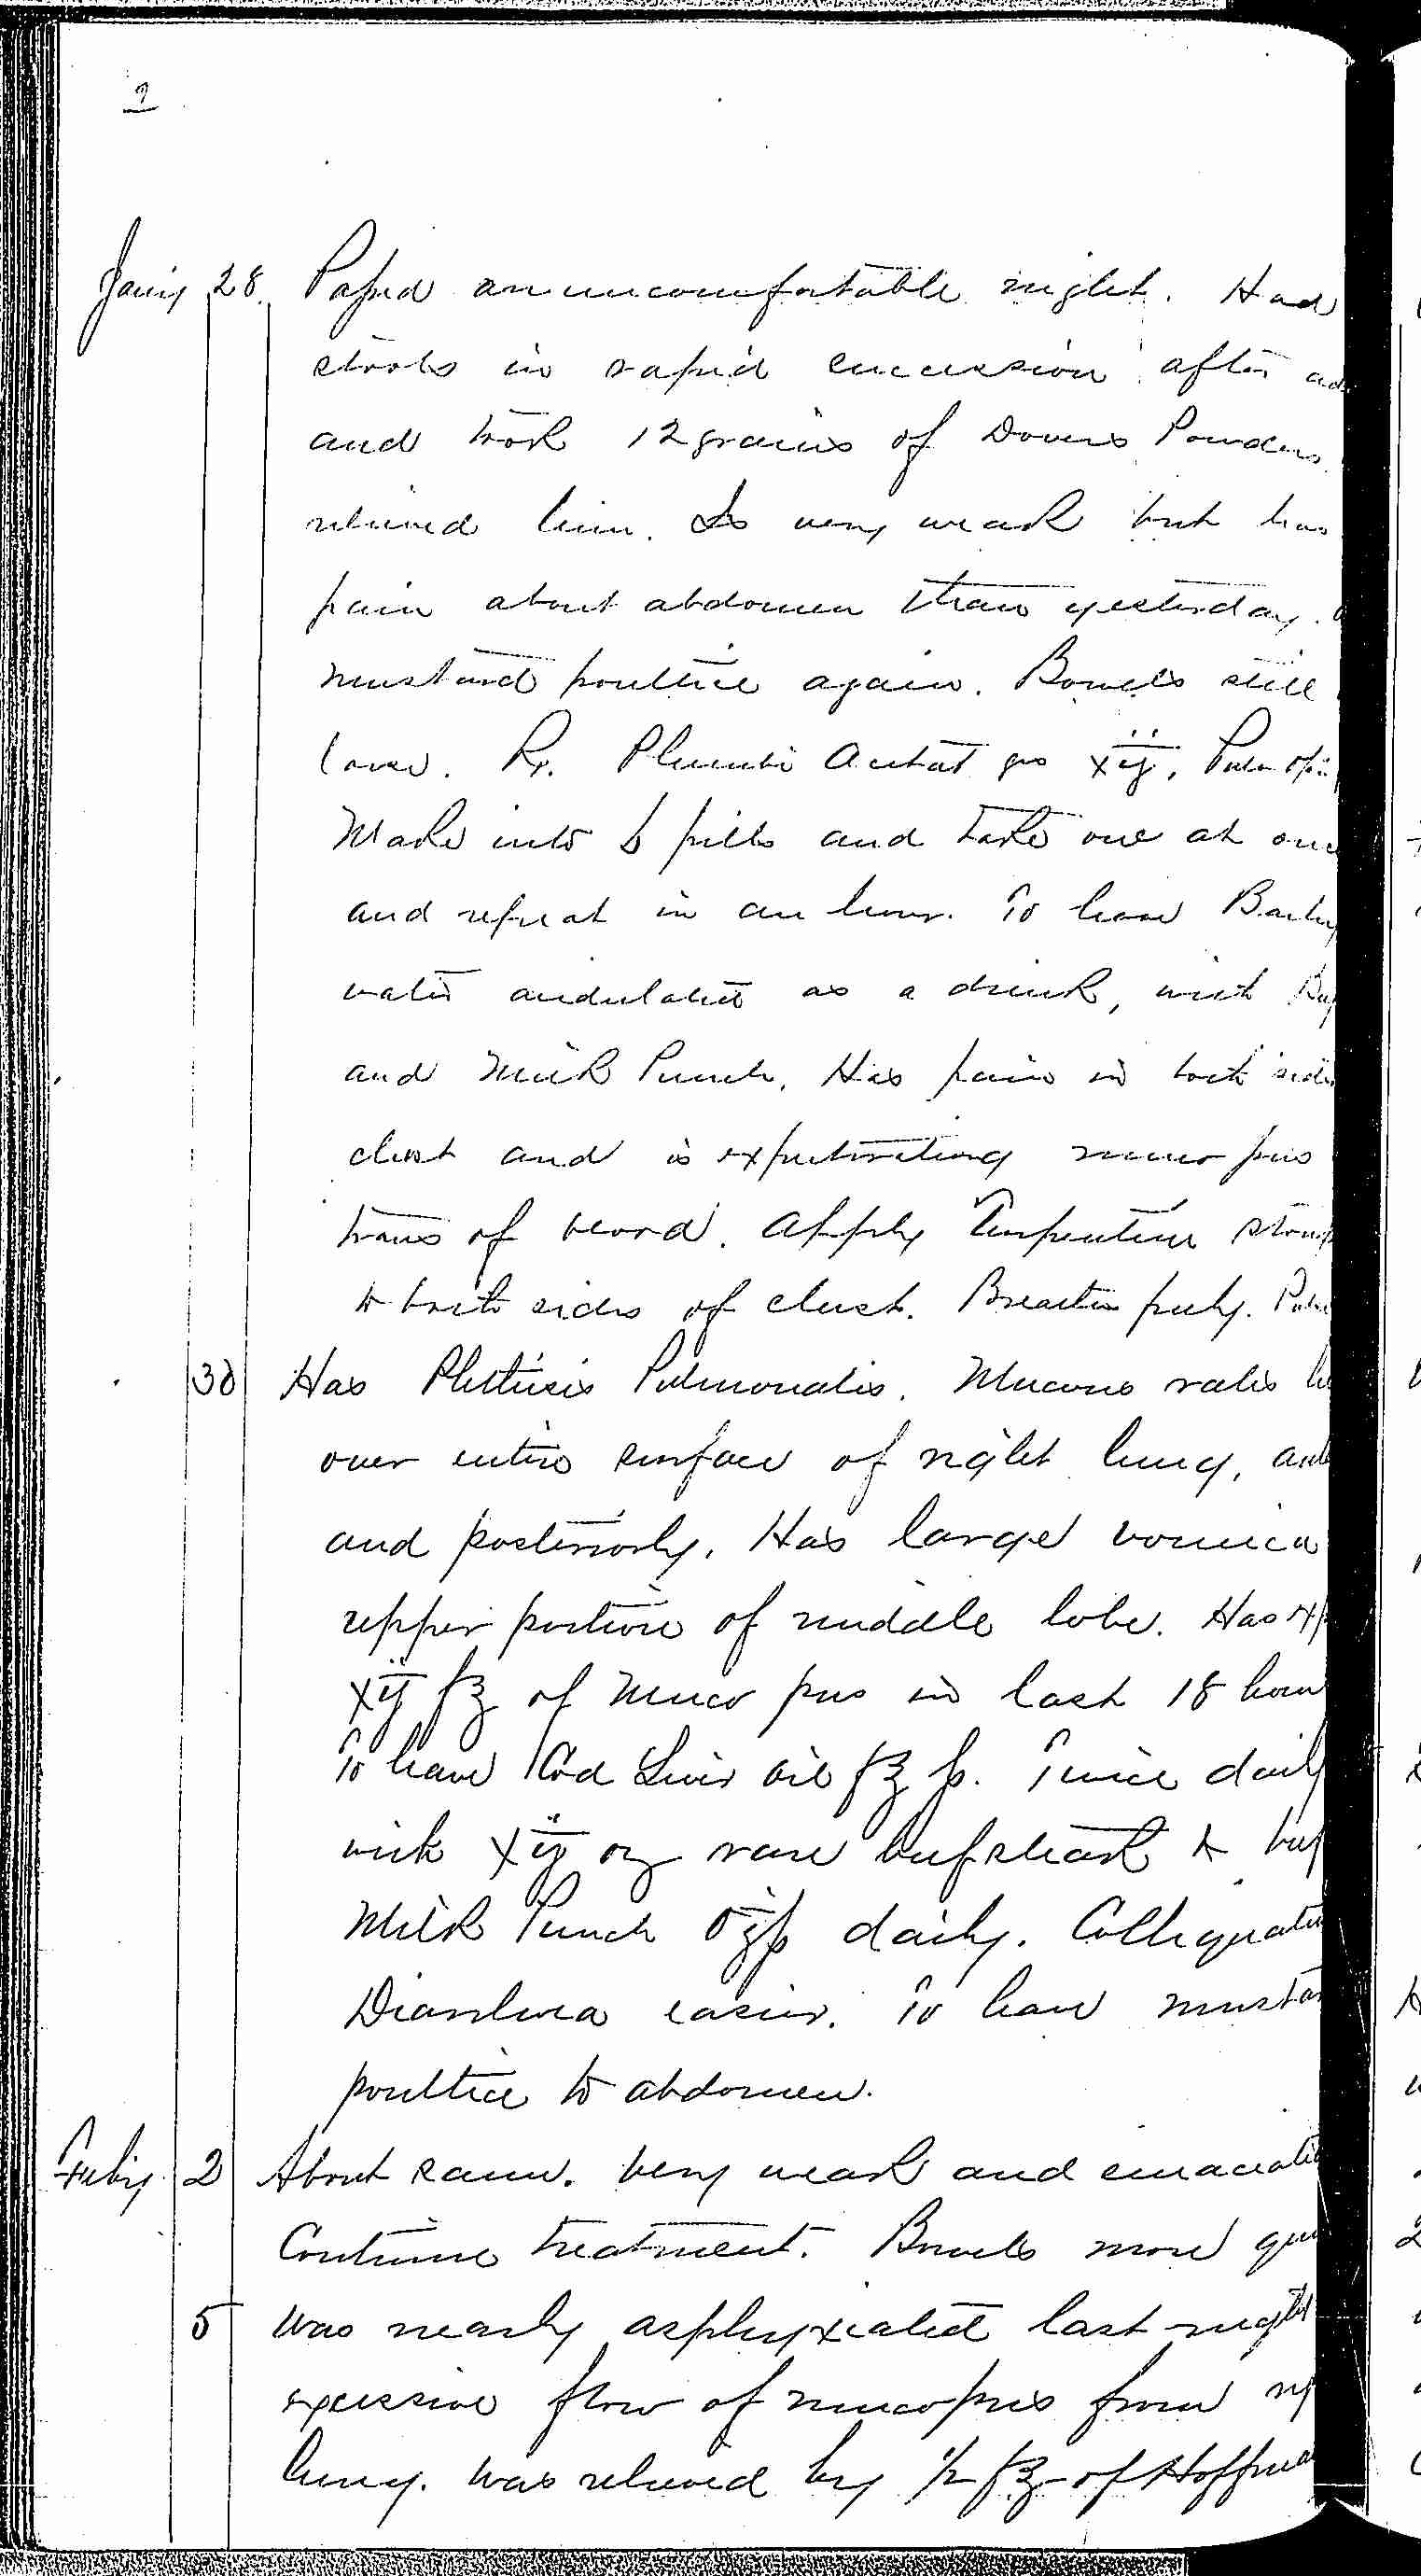 2
Jany 28. Passed an uncomfortable night. Had
stools in rapid succession after
and took 12 grains of Dovers Powders
relieved him. Is very weak but has
pain about abdomen than yesterday.
mustard poultice again. Bowels still
loose. Rx. Plumbi Acetat grs xij, Pulv Opii
Make into 6 pills and take one at once
and repeat in an hour. To have Barley
water acidulated as a drink, with
and Milk Punch. Has pain in both sides
chest and is expectorating muco pus
traces of blood. Apply Turpentine
to both sides of chest. Breathes freely.
30 Has Phthisis Pulmonalis. Mucous rales
over entire surface of right lung,
and posteriorly. Has large vomica
upper portion of middle lobe. Has
xij f℥ of Muco pus in last 18 hour
To have Cod Liver Oil f℥ ss. Twice daily
with xij oz rare beefsteak &
Milk Punch Oiss daily. Colliquative
Diarrhoea easier. To have mustar
poultice to abdomen.
Feby 2 About same. Very weak and emaciated
Continue treatment. Bowels more
5 Was nearly asphyxiated last night
excessive flow of mucopus from
lung. Was relieved by 1/2 f℥ of Hoffman